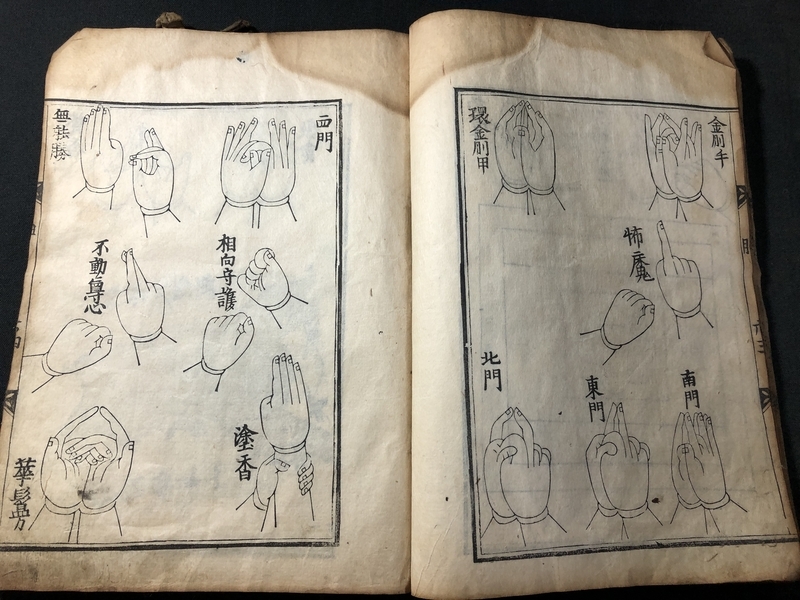 金剛手
環金剛甲
怖魔
南門
東門
北門
西門
無能勝
相向守護
不動尊心
塗香
華鬘